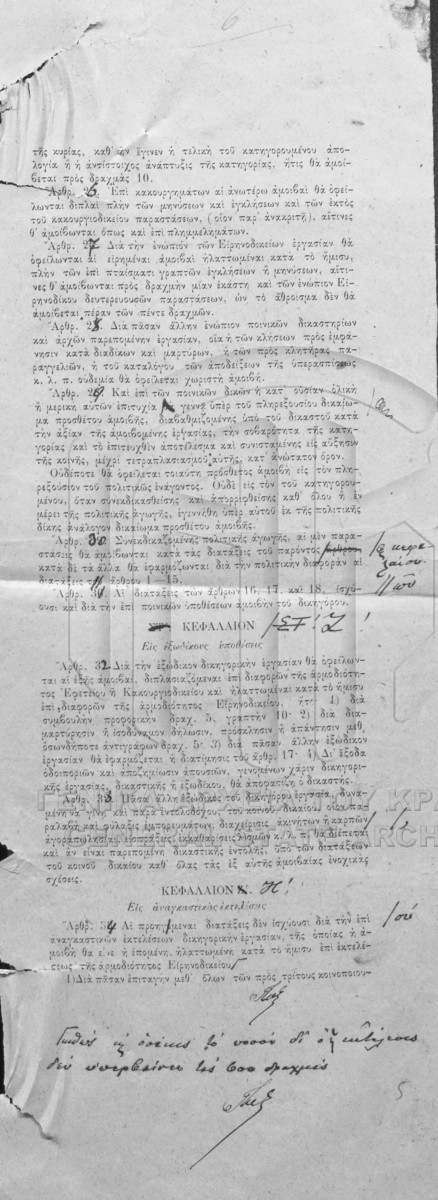 τῆς κυρίας, καθ' ἣν ἔγινεν ἡ τελικὴ τοῦ κατηγορουμένου ἀπο-
λογία ἢ ἡ ἀντίστοιχος ἀνάπτυξις τῆς κατηγορίας, ἥτις θὰ ἀμοί-
βεται πρὸς δραχμὰς 10.
Ἄρθρ. 26. Ἐπὶ κακουργημάτων αἱ ἀνωτέρω ἀμοιβαὶ θὰ ὀφεί-
λωνται διπλαῖ πλὴν τῶν μηνύσεων καὶ ἐγκλήσεων καὶ τῶν ἐκτὸς
τοῦ κακουργιοδικείου παραστάσεων, (οἷον παρ' ἀνακριτῇ), αἵτινες
θ' ἀμοίβωνται ὅπως καὶ ἐπὶ πλημμελημάτων.
Ἄρθρ. 27. Διὰ τὴν ἐνώπιον τῶν Εἰρηνοδικείων ἐργασίαν θὰ
ὀφείλωνται αἱ εἰρημέναι ἀμοιβαὶ ἠλαττωμέναι κατὰ τὸ ἥμισυ,
πλὴν τῶν ἐπὶ πταίσματι γραπτῶν ἐγκλήσεων ἢ μηνύσεων, αἵτι-
νες θ' ἀμοίβωνται πρὸς δραχμὴν μίαν ἑκάστη καὶ τῶν ἐνώπιον Εἰρ-
ηνοδίκου δευτερευουσῶν παραστάσεων, ὧν τὸ ἄθροισμα δὲν θὰ
ἀμοίβεται πέραν τῶν πέντε δραχμῶν.
Ἄρθρ. 28. Διὰ πᾶσαν ἄλλην ἐνώπιον ποινικῶν δικαστηρίων
καὶ ἀρχῶν παρεπομένην ἐργασίαν, οἵα ἡ τῶν κλήσεων πρὸς ἐμφά-
νησιν κατὰ διαδίκων καὶ μαρτύρων, ἡ τῶν πρὸς κλητῆρας πα-
ραγγελιῶν, ἡ τοῦ καταλόγου τῶν ἀποδείξεων τῆς ὑπερασπίσεως
κ. λ. π. οὐδεμία θὰ ὀφείλεται χωριστὴ ἀμοιβή.
Ἄρθρ. 29. Καὶ ἐπὶ τῶν ποινικῶν δικῶν ἡ κατ' οὐσίαν ὁλικὴ
ἢ μερικὴ αὐτῶν ἐπιτυχία γεννᾷ ὑπὲρ τοῦ πληρεξουσίου δικαίω-
μα προσθέτου ἀμοιβῆς, διαβαθμιζομένης ὑπὸ τοῦ δικαστοῦ κατὰ
τὴν ἀξίαν τῆς ἀμοιβομένης ἐργασίας, τὴν σοβαρότητα τῆς κατη-
γορίας καὶ τὸ ἐπιτευχθὲν ἀποτέλεσμα καὶ συνισταμένης εἰς αὔξησιν
τῆς κοινῆς, μέχρι τετραπλασιασμοῦ αὐτῆς, κατ' ἀνώτατον ὅρον.
Οὐδέποτε θὰ ὀφείλεται τοιαύτη πρόσθετος ἀμοιβὴ εἰς τὸν πλη-
ρεξούσιον τοῦ πολιτικῶς ἐνάγοντος. Οὐδὲ εἰς τὸν τοῦ κατηγορου-
μένου, ὅταν συνεκδικασθείσης καὶ ἀπορριφθείσης καθ' ὅλου ἢ ἐν
μέρει τῆς πολιτικῆς ἀγωγῆς, ἐγεννήθη ὑπὲρ αὐτοῦ ἐκ τῆς πολιτικῆς
δίκης ἀνάλογον δικαίωμα προσθέτου ἀμοιβῆς.
Ἄρθρ. 30. Συνεκδικαζομένης πολιτικῆς ἀγωγῆς, αἱ μὲν παρα-
στάσεις θὰ ἀμοίβωνται κατὰ τὰς διατάξεις τοῦ παρόντος κεφα-
λαίου
κατὰ δὲ τὰ ἄλλα θὰ ἐφαρμόζωνται διὰ τὴν πολιτικὴν διαφορὰν αἱ
διατάξεις ἄρθρου 1—15.
Ἄρθρ. 31. Αἱ διατάξεις τῶν ἄρθρων 16, 17, καὶ 18, ἰσχύ-
ουσι καὶ διὰ τὴν ἐπὶ ποινικῶν ὑποθέσεων ἀμοιβὴν τοῦ δικηγόρου.
ΚΕΦΑΛΑΙΟΝ Ζ'
Εἰς ἐξωδίκους ὑποθέσεις
Ἄρθρ. 32. Διὰ τὴν ἐξώδικον δικηγορικὴν ἐργασίαν θὰ ὀφείλων-
ται αἱ ἑξῆς ἀμοιβαί, διπλασιαζόμεναι ἐπὶ διαφορῶν τῆς ἁρμοδιότη-
τος Ἐφετείου ἢ Κακουργιοδικείου καὶ ἠλαττωμέναι κατὰ τὸ ἥμισυ
ἐπὶ διαφορῶν τῆς ἁρμοδιότητος Εἰρηνοδικείου, ἤτοι 1) διὰ
συμβουλὴν προφορικὴν δραχ. 5, γραπτὴν 10· 2) διὰ δια-
μαρτύρησιν ἢ ἰσοδύναμον δήλωσιν, πρόσκλησιν ἢ ἀπάντησιν μεθ'
ὁσωνδήποτε ἀντιγράφων δραχ. 5· 3) διὰ πᾶσαν ἄλλην ἐξώδικον
ἐργασίαν θὰ ἐφαρμόζεται ἡ διατίμησις τοῦ ἄρθρ. 17· 4) Δι' ἔξοδα
ὁδοιποριῶν καὶ ἀποζημίωσιν ἀπουσιῶν, γενομένων χάριν δικηγορι-
κῆς ἐργασίας, δικαστικῆς ἢ ἐξωδίκου, θὰ ἀποφασίζῃ ὁ δικαστής.
Ἄρθρ. 33. Πᾶσα ἄλλη ἐξώδικος τοῦ δικηγόρου ἐργασία, δυνα-
μένη νὰ γίνῃ καὶ παρὰ ἐντολοδόχου τοῦ κοινοῦ δικαίου, οἵα παρα-
λαβὴ καὶ φύλαξις ἐμπορευμάτων, διαχείρισις ἀκινήτων ἢ καρπῶν
ἀγοραπωλησίαι, εἰσπράξεις, ἐκκαθαρίσεις λ)σμῶν κ. λ. π. θὰ διέπεται
καὶ ἂν εἶναι παρεπομένη δικαστικῆς ἐντολῆς, ὑπὸ τῶν διατάξεων
τοῦ κοινοῦ δικαίου καθ' ὅλας τὰς ἐξ αὐτῆς ἀμοιβαίας ἐνοχικὰς
σχέσεις.
ΚΕΦΑΛΑΙΟΝ Η'.
Εἰς ἀναγκαστικὰς ἐκτελέσεις
Ἄρθρ. 34. Αἱ προηγούμεναι διατάξεις δὲν ἰσχύουσι διὰ τὴν ἐπὶ
ἀναγκαστικῶν ἐκτελέσεων δικηγορικὴν ἐργασίαν, τῆς ὁποίας ἡ ἀ-
μοιβὴ θὰ εἶνε ἡ ἑπομένη, ἠλαττωμένη κατὰ τὸ ἥμισυ ἐπὶ ἐκτελέ-
σεως τῆς ἁρμοδιότητος Εἰρηνοδικείου
1) Διὰ πᾶσαν ἐπιταγὴν μεθ' ὅλων τῶν πρὸς τρίτους κοινοποιου-
τὸ ποσὸν δι' ὃ ἡ ἐκτέλεσις
δὲν ὑπερβαίνει τὰς 600 δραχμάς